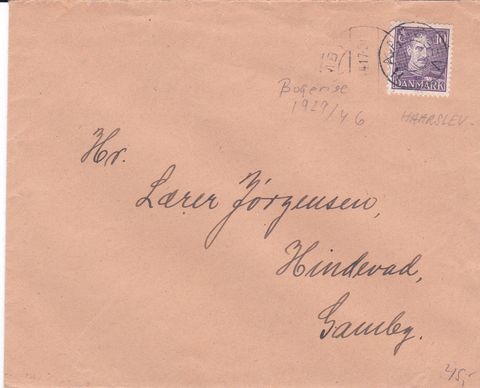 10
DANMARK
Bogense
1929/46
HAARSLEV.
Hr.
Lærer Jörgensen,
Hindevad,
Gamby.
45,-